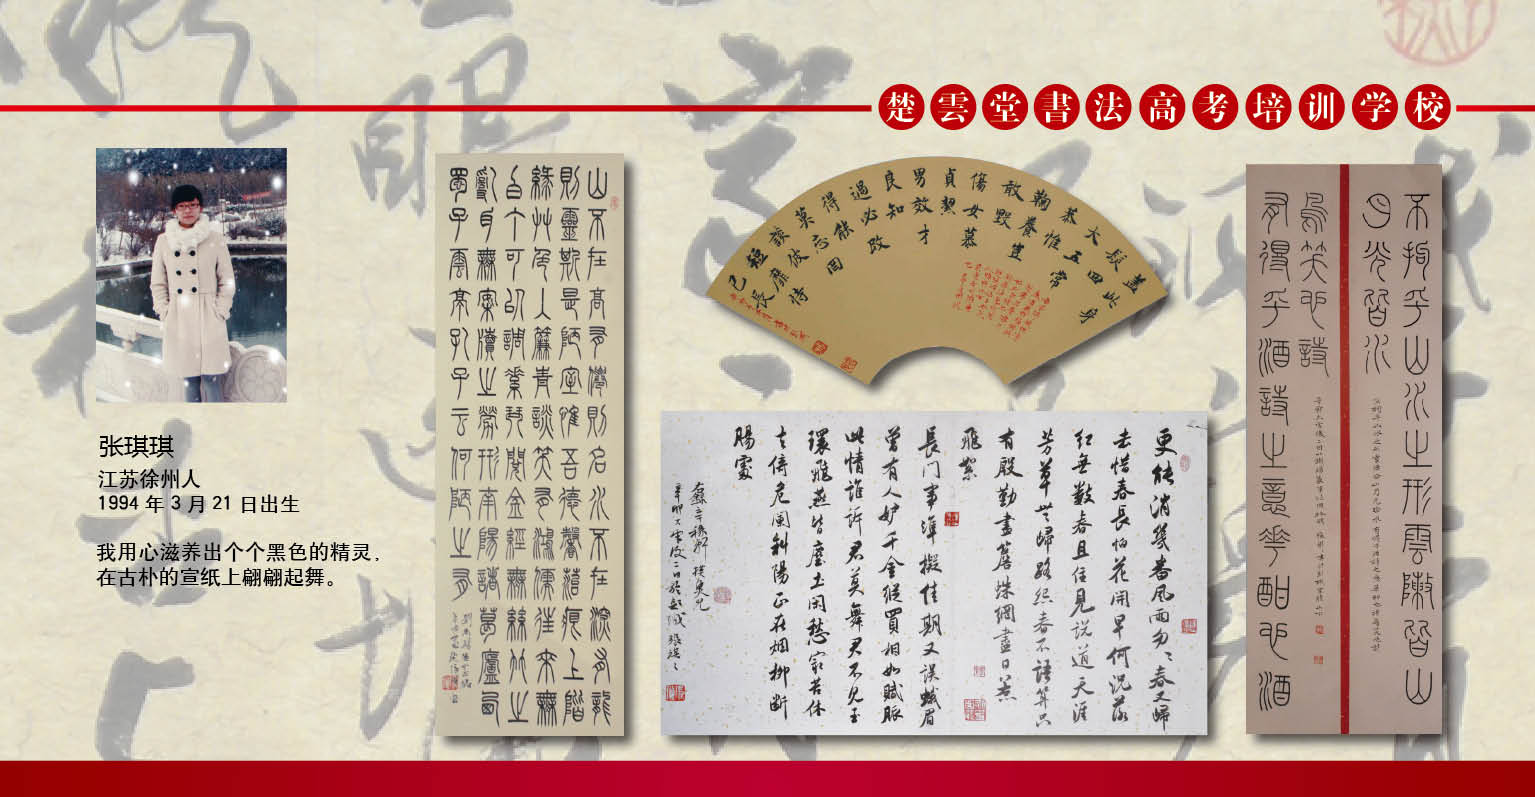 楚雲堂書法高考培训学校
张琪琪
江苏徐州人
1994 年 3 月 21 日出生
我用心滋养出个个黑色的精灵，
在古朴的宣纸上翩翩起舞。
山不在高有僊則名水不在深有龍
則靈斯是陋室惟吾德馨苔痕上階
綠艸色入簾青談笑有鴻儒往來無
白丁可以調素琴閱金經無絲竹之
亂耳無案牘之勞形南陽諸葛廬西
蜀子雲亭孔子云何陋之有
蓋此身
髮四
大五常
恭惟
鞠養豈
敢毀
傷女慕
貞絜
男效才
良知
過必改
得能
莫忘罔
談彼
短靡恃
己長
更能消幾番風雨匆々春又歸
去惜春長怕花開早何況落
紅無數春且住見說道天涯
芳草無歸路怨春不語算只
有殷勤畫簷蛛網盡日惹
飛絮
長门事準擬佳期又誤蛾眉
曾有人妒千金縱買相如賦脈
此情誰訴君莫舞君不見玉
環飛燕皆塵土閑愁最苦休
去倚危闌斜陽正在烟柳斷
腸處
右錄辛稼軒摸魚兒
不拘乎山水之形雲陣皆山
月光皆水
有得乎酒詩之意花酣也酒
鳥笑也詩